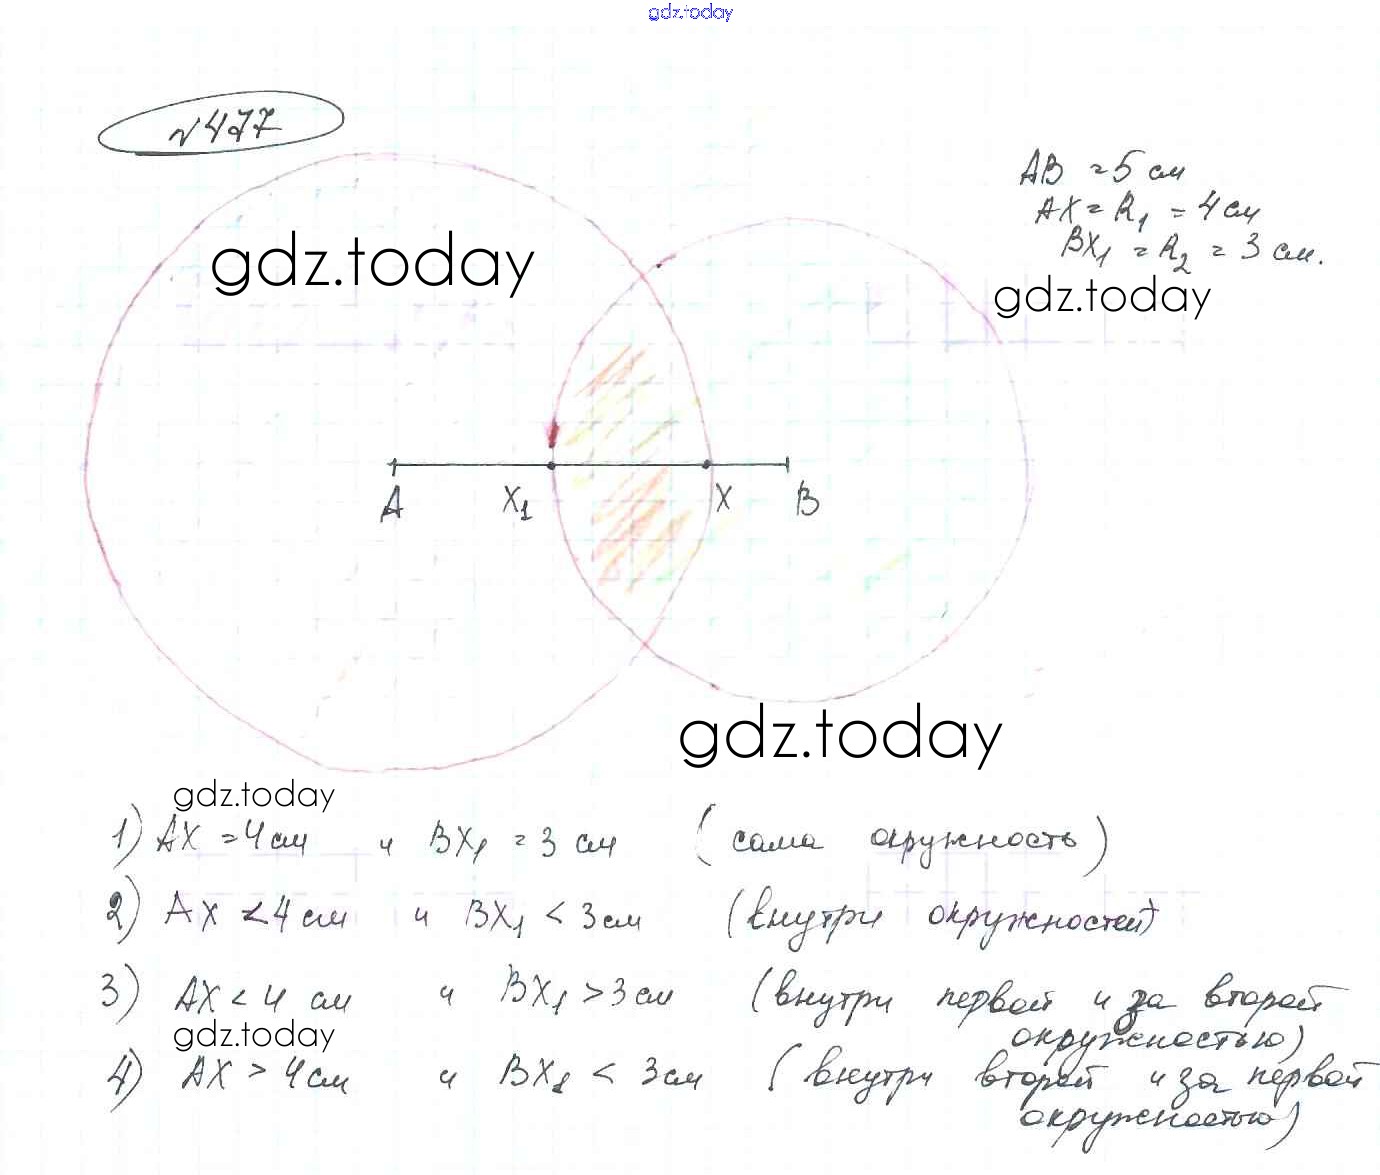 gdz.today
№477
AB = 5 см
AX = R₁ = 4 см
BX₁ = R₂ = 3 см.
gdz.today
gdz.today
A X₁ X B
gdz.today
gdz.today
1) AX = 4 см и BX₁ = 3 см (сама окружность)
2) AX < 4 см и BX₁ < 3 см (внутри окружностей)
3) AX < 4 см и BX₁ > 3 см (внутри первой и за второй
окружностью)
gdz.today
4) AX > 4 см и BX₁ < 3 см (внутри второй и за первой
окружностью)